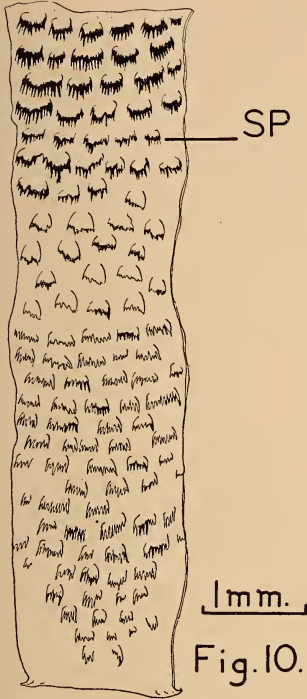 SP
1mm.
Fig.10.